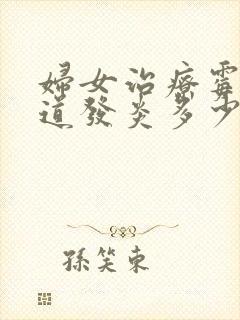 婦女治療霉
道發炎多少
孫笑東